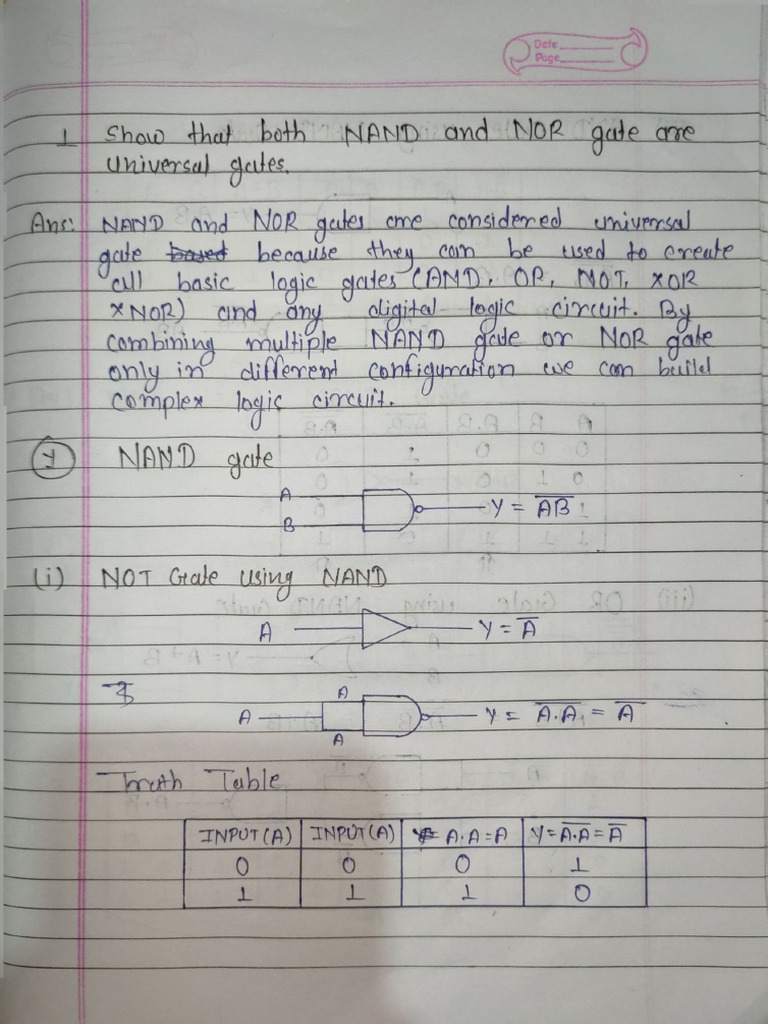 Date
Page
1 Show that both NAND and NOR gate are
universal gates.
Ans: NAND and NOR gates are considered universal
gate based because they can be used to create
all basic logic gates (AND, OR, NOT, XOR
XNOR) and any digital logic circuit. By
combining multiple NAND gate or NOR gate
only in different configuration we can build
complex logic circuit.
NAND gate
A
B
Y = A̅B̅
(i) NOT Gate using NAND
A Y = A̅
A
A Y = A̅.̅A̅ = A̅
A
Truth Table
INPUT(A) INPUT(A) A.A=A Y=A̅.̅A̅=A̅
0 0 0 1
1 1 1 0